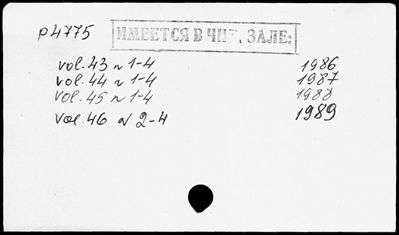 p4775
ИМЕЕТСЯ В ЧИТ. ЗАЛЕ:
vol. 43 N 1-4 1986
vol. 44 N 1-4 1987
vol. 45 N 1-4 1988
vol. 46 N 2-4 1989